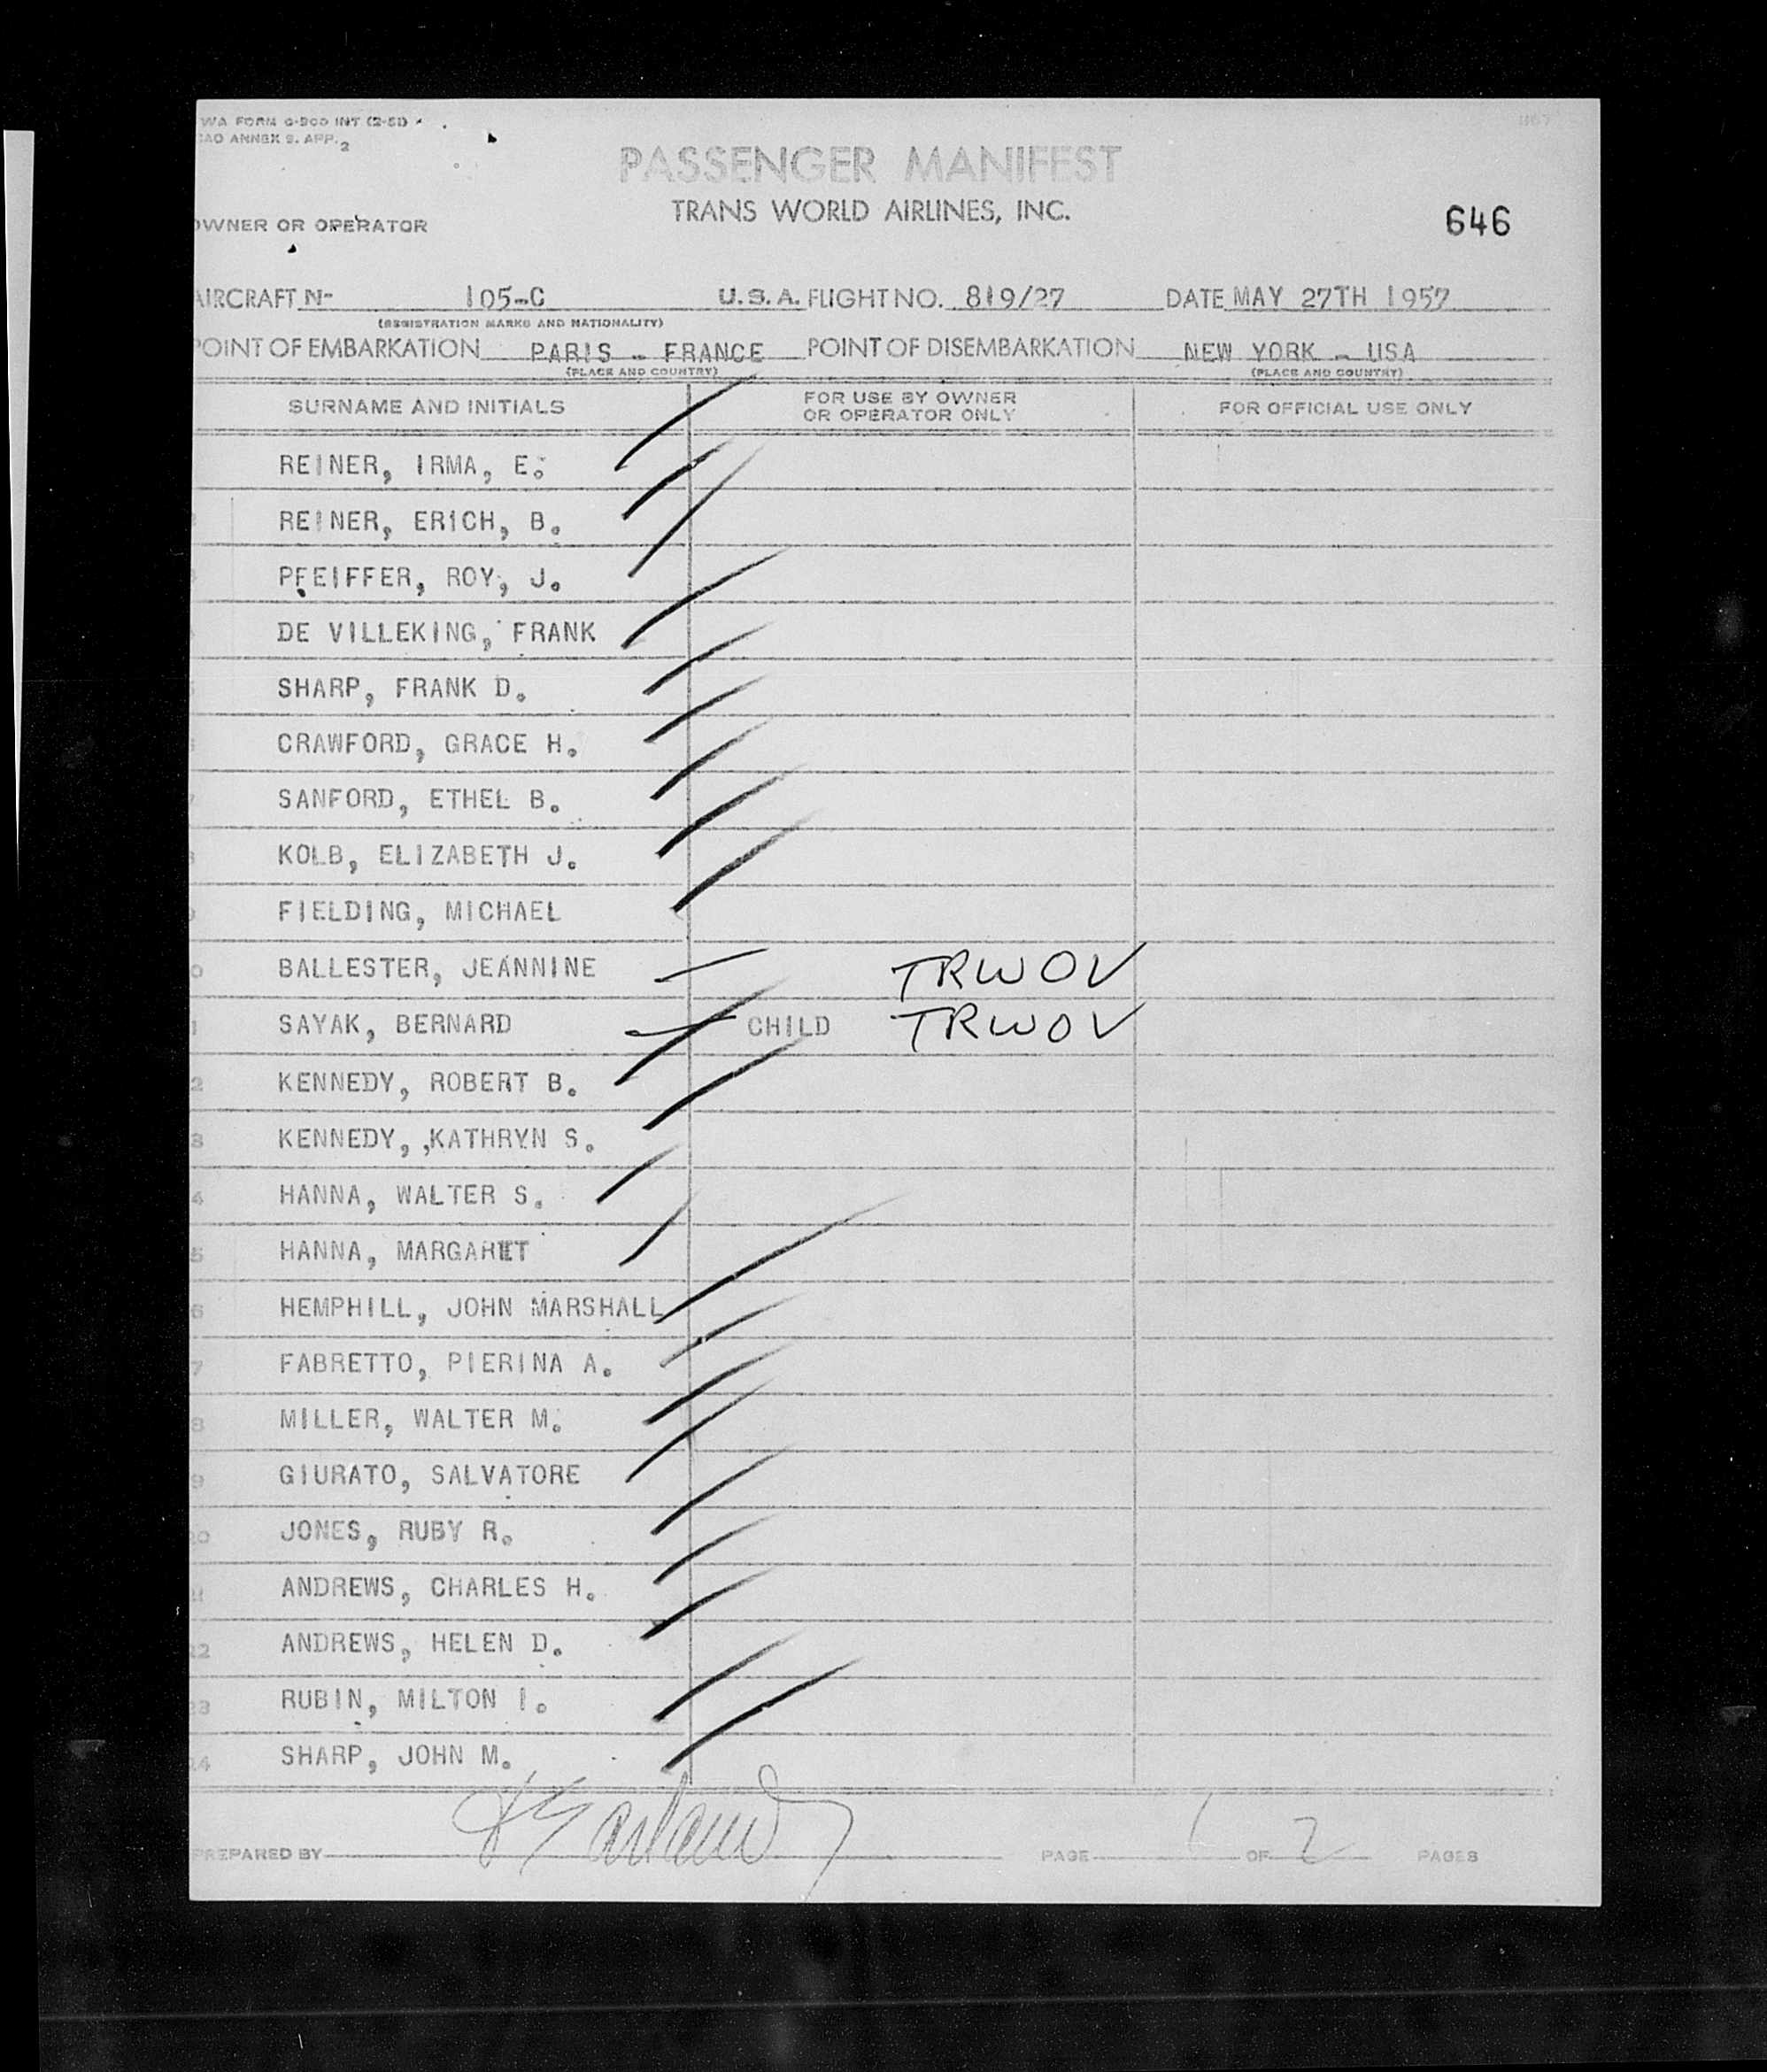 WA FORM O-900 INT (2-51)
CAO ANNEX 9. APP. 2
PASSENGER MANIFEST
TRANS WORLD AIRLINES, INC.
OWNER OR OPERATOR
646
AIRCRAFT N- 105-C U.S.A. FLIGHT NO. 819/27 DATE MAY 27TH 1957
(REGISTRATION MARKS AND NATIONALITY)
POINT OF EMBARKATION PARIS - FRANCE POINT OF DISEMBARKATION NEW YORK - USA
(PLACE AND COUNTRY) (PLACE AND COUNTRY)
SURNAME AND INITIALS FOR USE BY OWNER OR OPERATOR ONLY FOR OFFICIAL USE ONLY
REINER, IRMA, E.
REINER, ERICH, B.
PFEIFFER, ROY, J.
DE VILLEKING, FRANK
SHARP, FRANK D.
CRAWFORD, GRACE H.
SANFORD, ETHEL B.
KOLB, ELIZABETH J.
FIELDING, MICHAEL
0 BALLESTER, JEANNINE TRWOV
1 SAYAK, BERNARD CHILD TRWOV
2 KENNEDY, ROBERT B.
3 KENNEDY, ,KATHRYN S.
4 HANNA, WALTER S.
5 HANNA, MARGARET
6 HEMPHILL, JOHN MARSHALL
7 FABRETTO, PIERINA A.
8 MILLER, WALTER M.
9 GIURATO, SALVATORE
20 JONES, RUBY R.
21 ANDREWS, CHARLES H.
22 ANDREWS, HELEN D.
23 RUBIN, MILTON I.
24 SHARP, JOHN M.
PREPARED BY PAGE 1 OF 2 PAGES